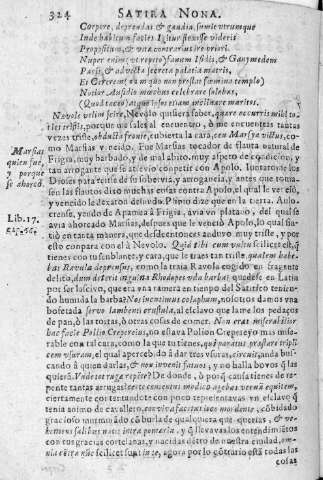 324 SATIRA NONA.
Corpore, deprendas & gaudia, sumit utrumque
Inde habitum facies. Igitur flexisse videris
Propositum, & vitæ contrarius ire priori.
Nuper enim (ut repeto) fanum Isidis, & Ganymedem
Pacis, & advectæ secreta palatia matris,
Et Cererem (nam quo non prostat fœmina templo)
Notior Aufidio mœchus celebrare solebas,
(Quod taceo) atque ipsos etiam inclinare maritos.
Nevole velim scire, Nevolo quisiera saber, quare occurris mihi to-
ties tristis, porque me sales al encuentro, ò me encuentras tantas
vezes triste, obducta fronte, cubierta la cara, ceu Marsya victus, co-
mo Marsias vencido. Fue Marsias tocador de flauta natural de
Frigia, muy barbado, y de mal abito, muy aspero de condicion, y
tan arrogante que se atreviò competir con Apolo. Iuntaronse los
Dioses para reirse de su sobervia, y arrogancia, y antes que tocas-
sen las flautas dixo muchas cosas contra Apolo, el qual le venciò,
y vencido le dexaron desnudo. Plinio dize que en la tierra Aulo-
crense, yendo de Apamia à Frigia, avia un platano, del qual se
avia ahorcado Marsias, despues que le venciò Apolo, lo qual sin-
tiò en tanta manera, que desde entonces anduvo muy triste, y por
esto compara con el à Nevolo. Quid tibi cum vultu scilicet est, q
tienes con tu semblante, y cara, que le traes tan triste, qualem habe-
bas Ravola deprensus, como la tenia Ravola cogido en fragante
delito,
por ser lascivo, que
do humida la barba? Nos incutimus colaphum, nosotros damos una
bofetada servo lambenti crustula, al esclavo que lame los pedaços
de pan, ò las tortas, ò otras cosas de comer. Non erat miserabilior
hac facie Pollio Crepereius, no estava Polion Crepereyo mas mise-
rable con tal cara, como la que tu tienes, qui paratus præstare tripli-
cem usuram, el qual apercebido à dar tres usuras, circuit, anda bus-
cando à quien darlas, & non invenit fatuos, y no halla bovos que las
quieran. Unde tot rugæ repente? De donde, ò porque causa tienes de re-
pente tantas arrugas? certe contentus modico agebas vernam equitem,
ciertamente contentandote con poco representavas un esclavo que
tenia animo de cavallero, conviva facetus ioco mordente, combidado
gracioso
hementes salibus natis intra pomæria, y que llevavas los entendimientos
con gracias cortesanas, y nacidas dentro de nuestra ciudad, om-
nia contra nunc scilicet sunt in te, agora por lo contrario està todas las
cosas
Marsias
quien fue,
y porque
se ahorcò.
Lib. 17.